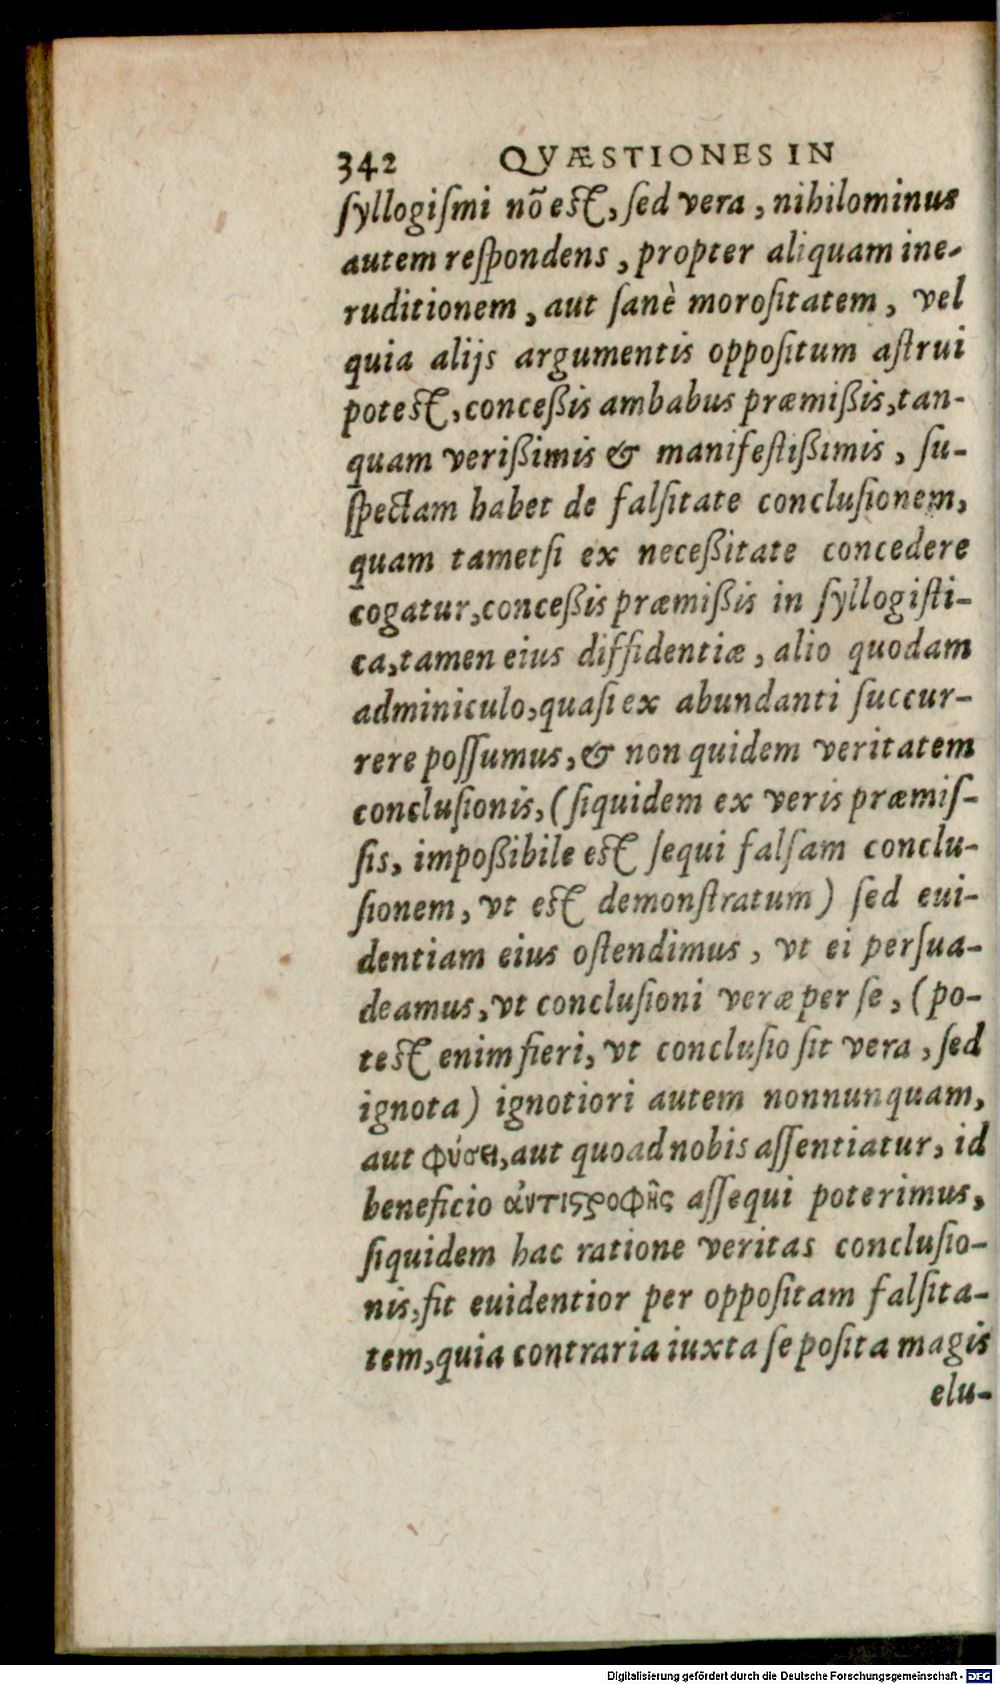 342 QVÆSTIONES IN
ſyllogiſmi nõ eſt, ſed vera, nihilominus
autem reſpondens, propter aliquam ine-
ruditionem, aut ſanè moroſitatem, vel
quia alijs argumentis oppoſitum aſtrui
poteſt, conceßis ambabus præmißis, tan-
quam verißimis & manifeſtißimis, ſu-
ſpectam habet de falſitate concluſionem,
quam tametſi ex neceßitate concedere
cogatur, conceßis præmißis in ſyllogiſti-
ca, tamen eius diffidentiæ, alio quodam
adminiculo, quaſi ex abundanti ſuccur-
rere poſſumus, & non quidem veritatem
concluſionis, (ſiquidem ex veris præmiſ-
ſis, impoßibile eſt ſequi falſam conclu-
ſionem, vt eſt demonſtratum) ſed eui-
dentiam eius oſtendimus, vt ei perſua-
deamus, vt concluſioni veræ per ſe, (po-
teſt enim fieri, vt concluſio ſit vera, ſed
ignota) ignotiori autem nonnunquam,
aut φύσει, aut quoad nobis aſſentiatur, id
beneficio ἀντιϛροφῆς aſſequi poterimus,
ſiquidem hac ratione veritas concluſio-
nis, fit euidentior per oppoſitam falſita-
tem, quia contraria iuxta ſe poſita magis
elu-
Digitalisierung gefördert durch die Deutsche Forschungsgemeinschaft - DFG